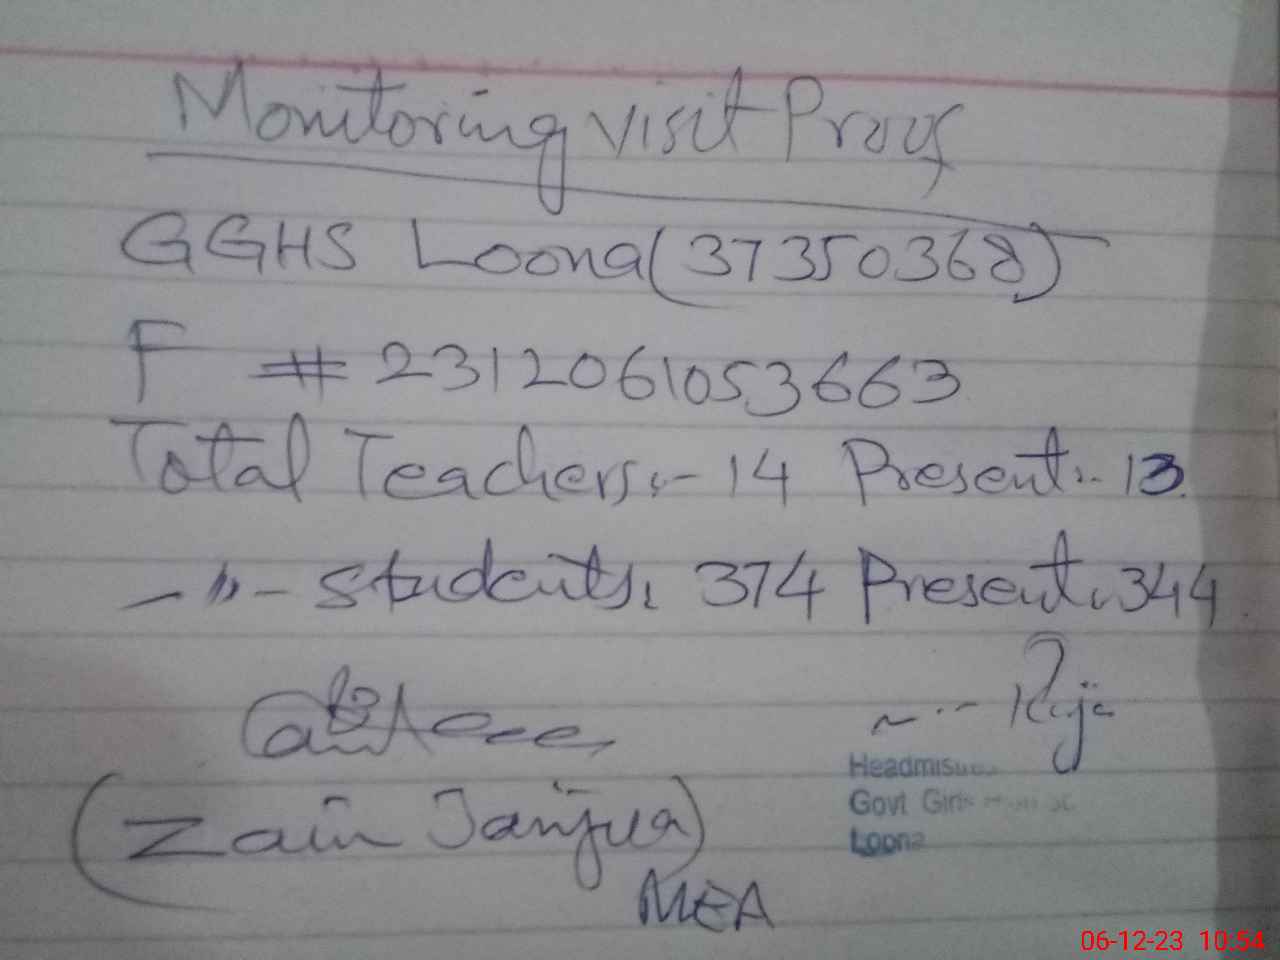 Monitoring visit Proof
GGHS Loona (37350368)
F # 2312061053663
Total Teachers:- 14 Present:- 13
-〃- Students: 374 Present: 344
(Zain Janjua)
MEA
Govt Girls
Loona
06-12-23 10:54